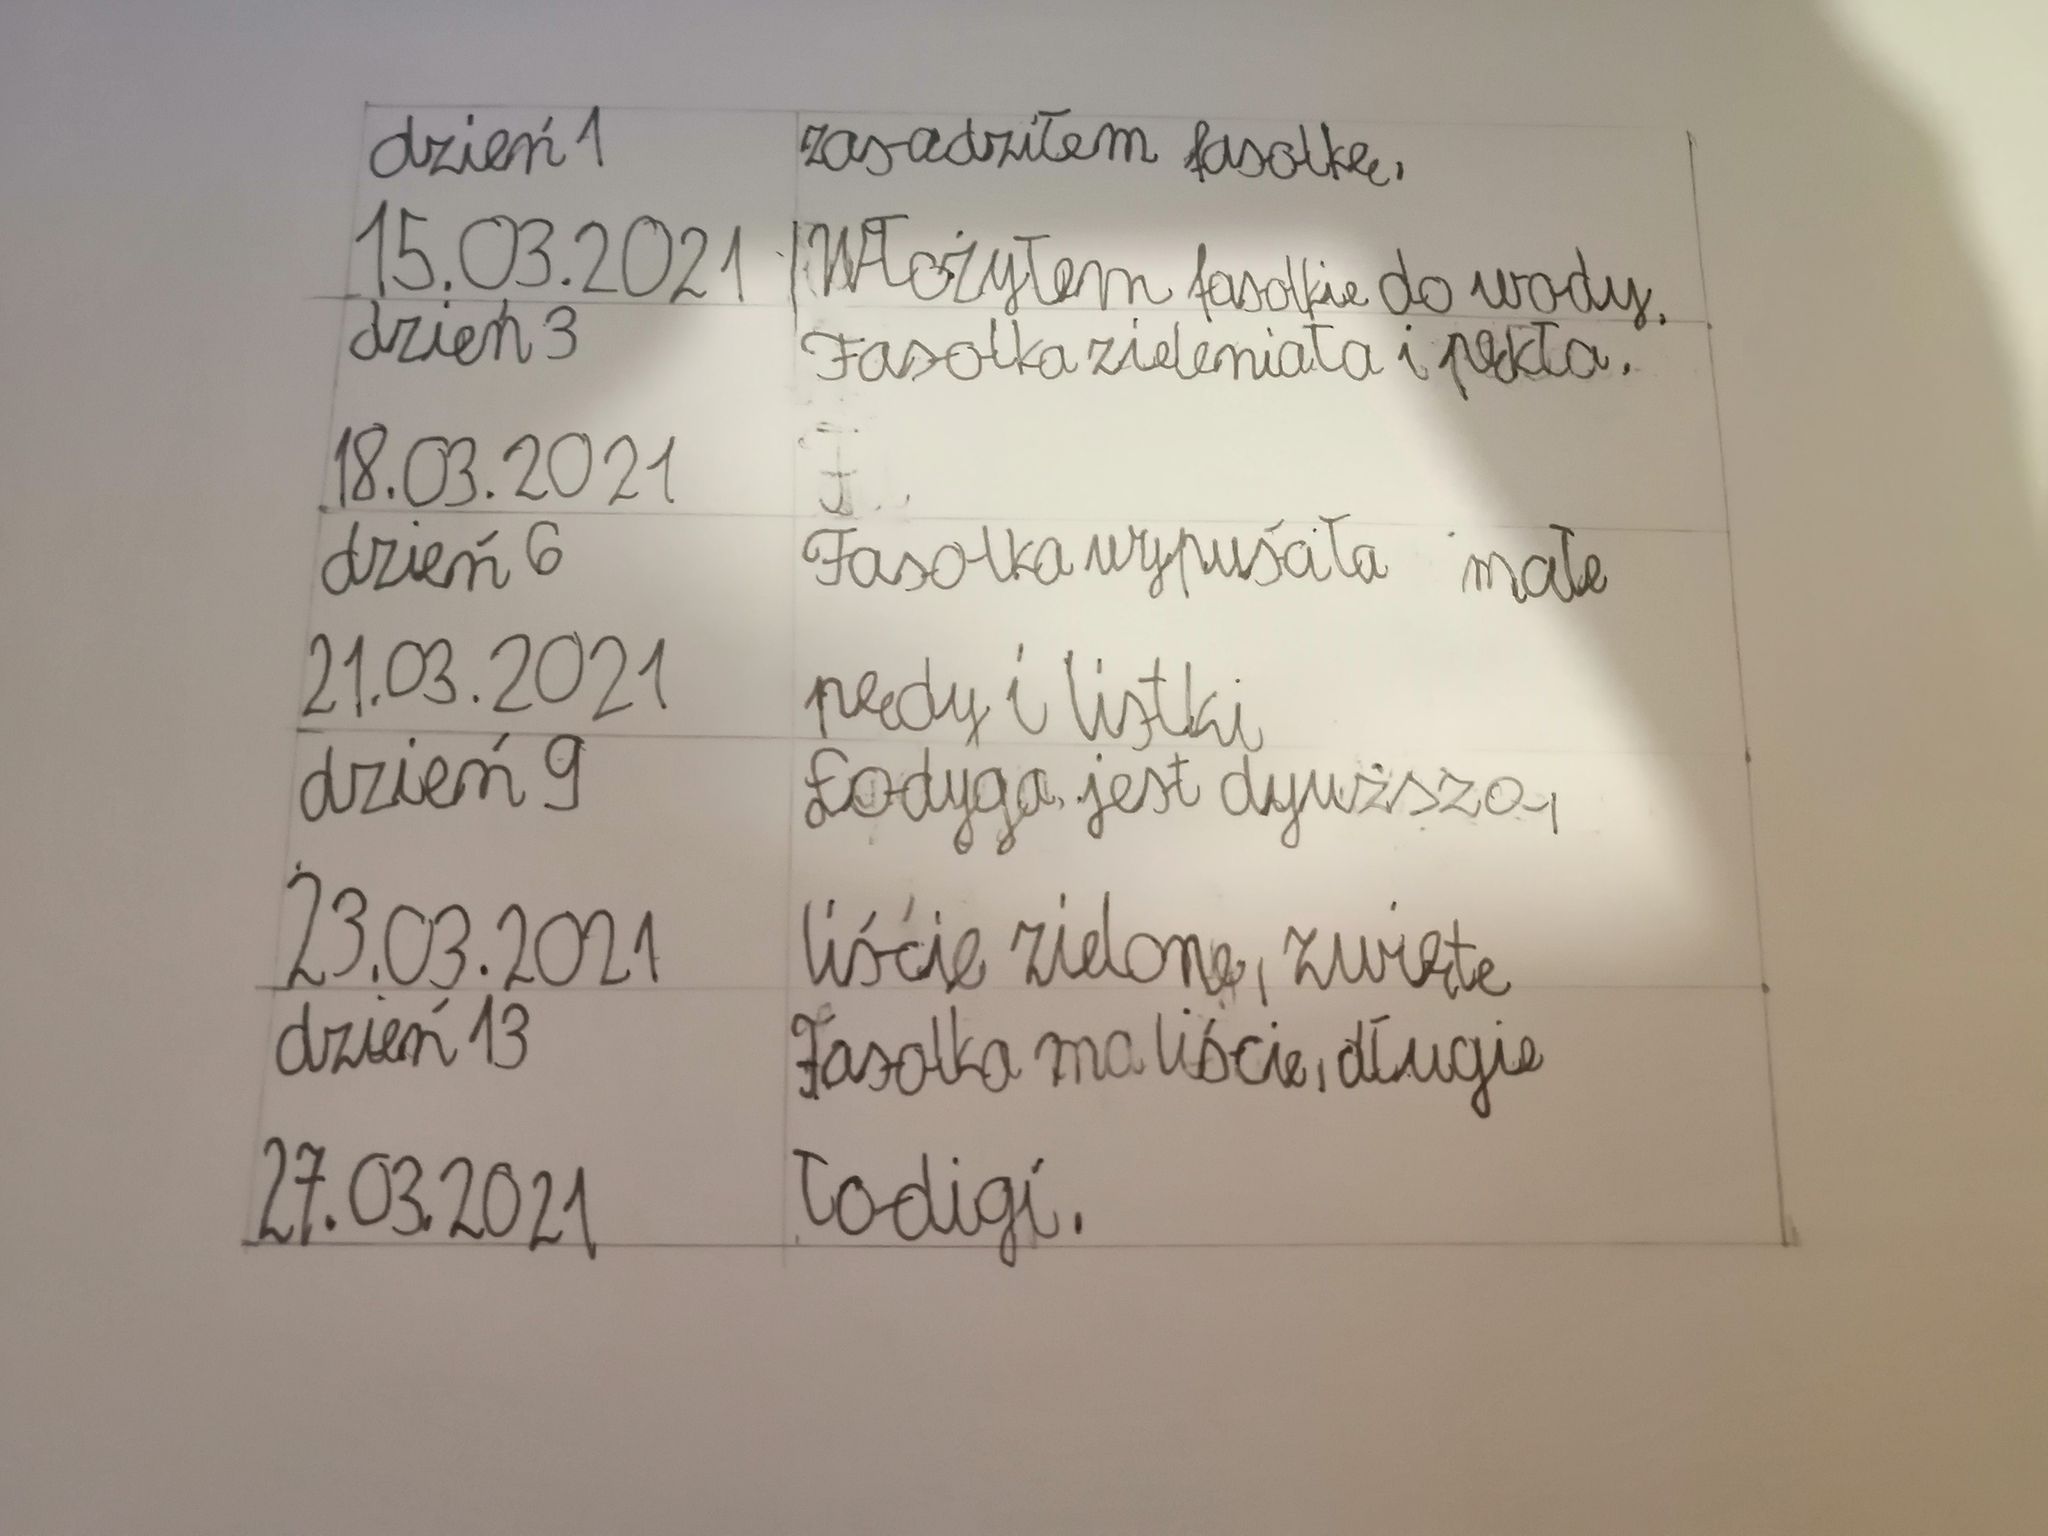 dzień 1 zasadziłem fasolkę.
15.03.2021 Włożyłem fasolkie do wody.
dzień 3 Fasolka zieleniała i pękła.
18.03.2021
dzień 6 Fasolka wypuściła małe
21.03.2021 pędy i listki
dzień 9 Łodyga jest dyuższa,
23.03.2021 liście zielone, zwięte
dzień 13 Fasolka ma liście, długie
27.03.2021 łodigi.